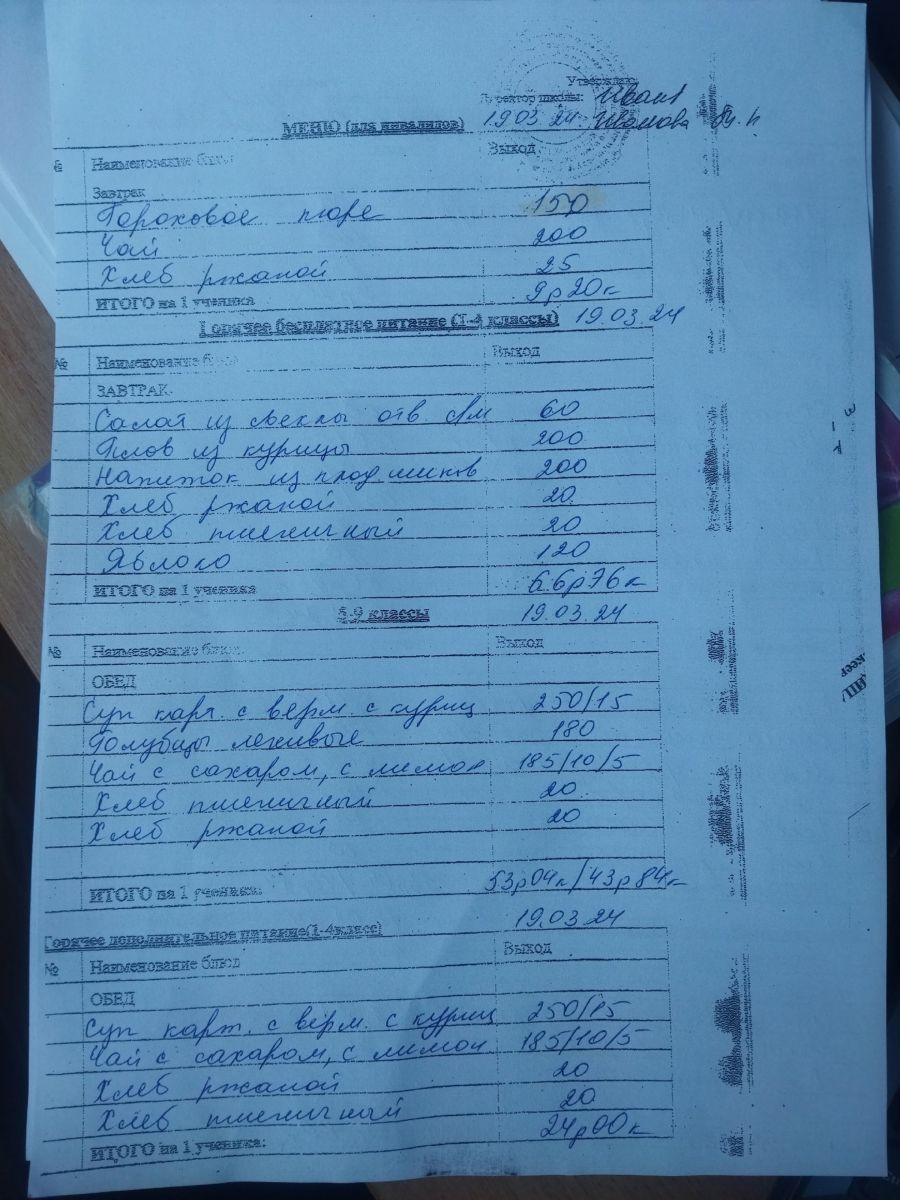 Утверждаю
Директор школы:
МЕНЮ (для инвалидов) 19.03.24 Иванова
№ Наименование блюд Выход
Завтрак
Гороховое пюре 150
Чай 200
Хлеб ржаной 25
ИТОГО на 1 ученика 9р20к
Горячее бесплатное питание (1-4 классы) 19.03.24
№ Наименование блюд Выход
ЗАВТРАК
Салат из свеклы отв с/м 60
Плов из курицы 200
Напиток из плод шипов 200
Хлеб ржаной 20
Хлеб пшеничный 20
Яблоко 120
ИТОГО на 1 ученика 66р76к
5-9 классы 19.03.24
№ Наименование блюд Выход
ОБЕД
Суп карт. с верм. с куриц 250/15
Голубцы ленивые 180
Чай с сахаром, с лимон 185/10/5
Хлеб пшеничный 20
Хлеб ржаной 20
ИТОГО на 1 ученика: 53р04к/43р84к
19.03.24
Горячее дополнительное питание(1-4класс)
№ Наименование блюд Выход
ОБЕД
Суп карт. с верм. с куриц 250/15
Чай с сахаром, с лимон 185/10/5
Хлеб ржаной 20
Хлеб пшеничный 20
ИТОГО на 1 ученика: 24р00к